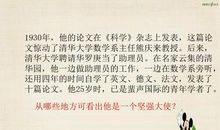 1930年，他的论文在《科学》杂志上发表，这篇论
文惊动了清华大学数学系主任熊庆来教授。后来，
清华大学聘请华罗庚当了助理员。在名家云集的清
华园，他一边做助理员的工作，一边在数学系旁听，
还用四年的时间自学了英文、德文、法文，发表了
十篇论文。他25岁时，已是蜚声国际的青年学者了。
从哪些地方可看出他是一个坚强大使？